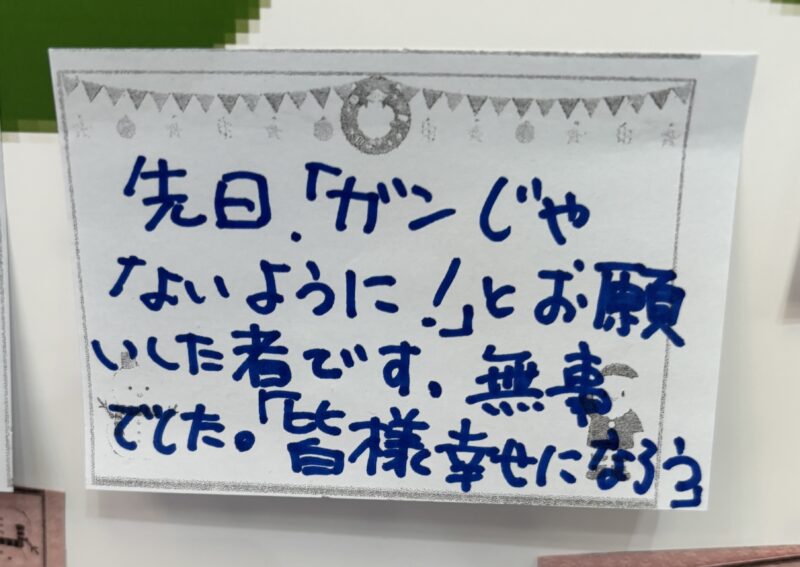 先日、「ガンじゃ
ないように！」とお願
いした者です、無事
でした。「皆様幸せになろう」